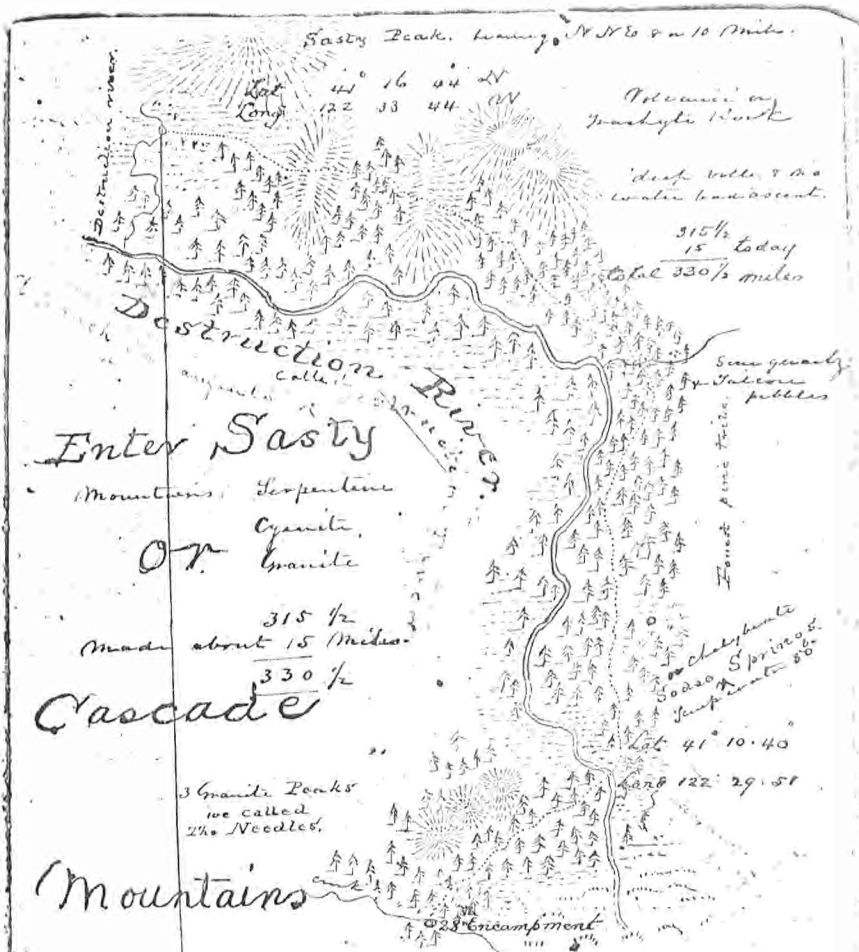 Sasty Peak. bearing N N E 8 or 10 Miles.
Lat 41° 16 44 N
Long 122 33 44 W
Volcanic or
Trachyte Rock
water bad ascent.
315½
15 today
total 330½ miles
Destruction river.
Destruction River.
Called
some quartz
& Talcose
pebbles
Found pine
Enter Sasty
Mountains Serpentine
Cyenite
Or Granite
315 ½
Made about 15 Miles.
330 ½
Cascade
or Chalybeate
Soda Springs.
Temperature 50°
Lat 41° 10·40°
Long 122° 29·51
3 Granite Peaks
we called
The Needles.
Mountains
creek
28 Encampment